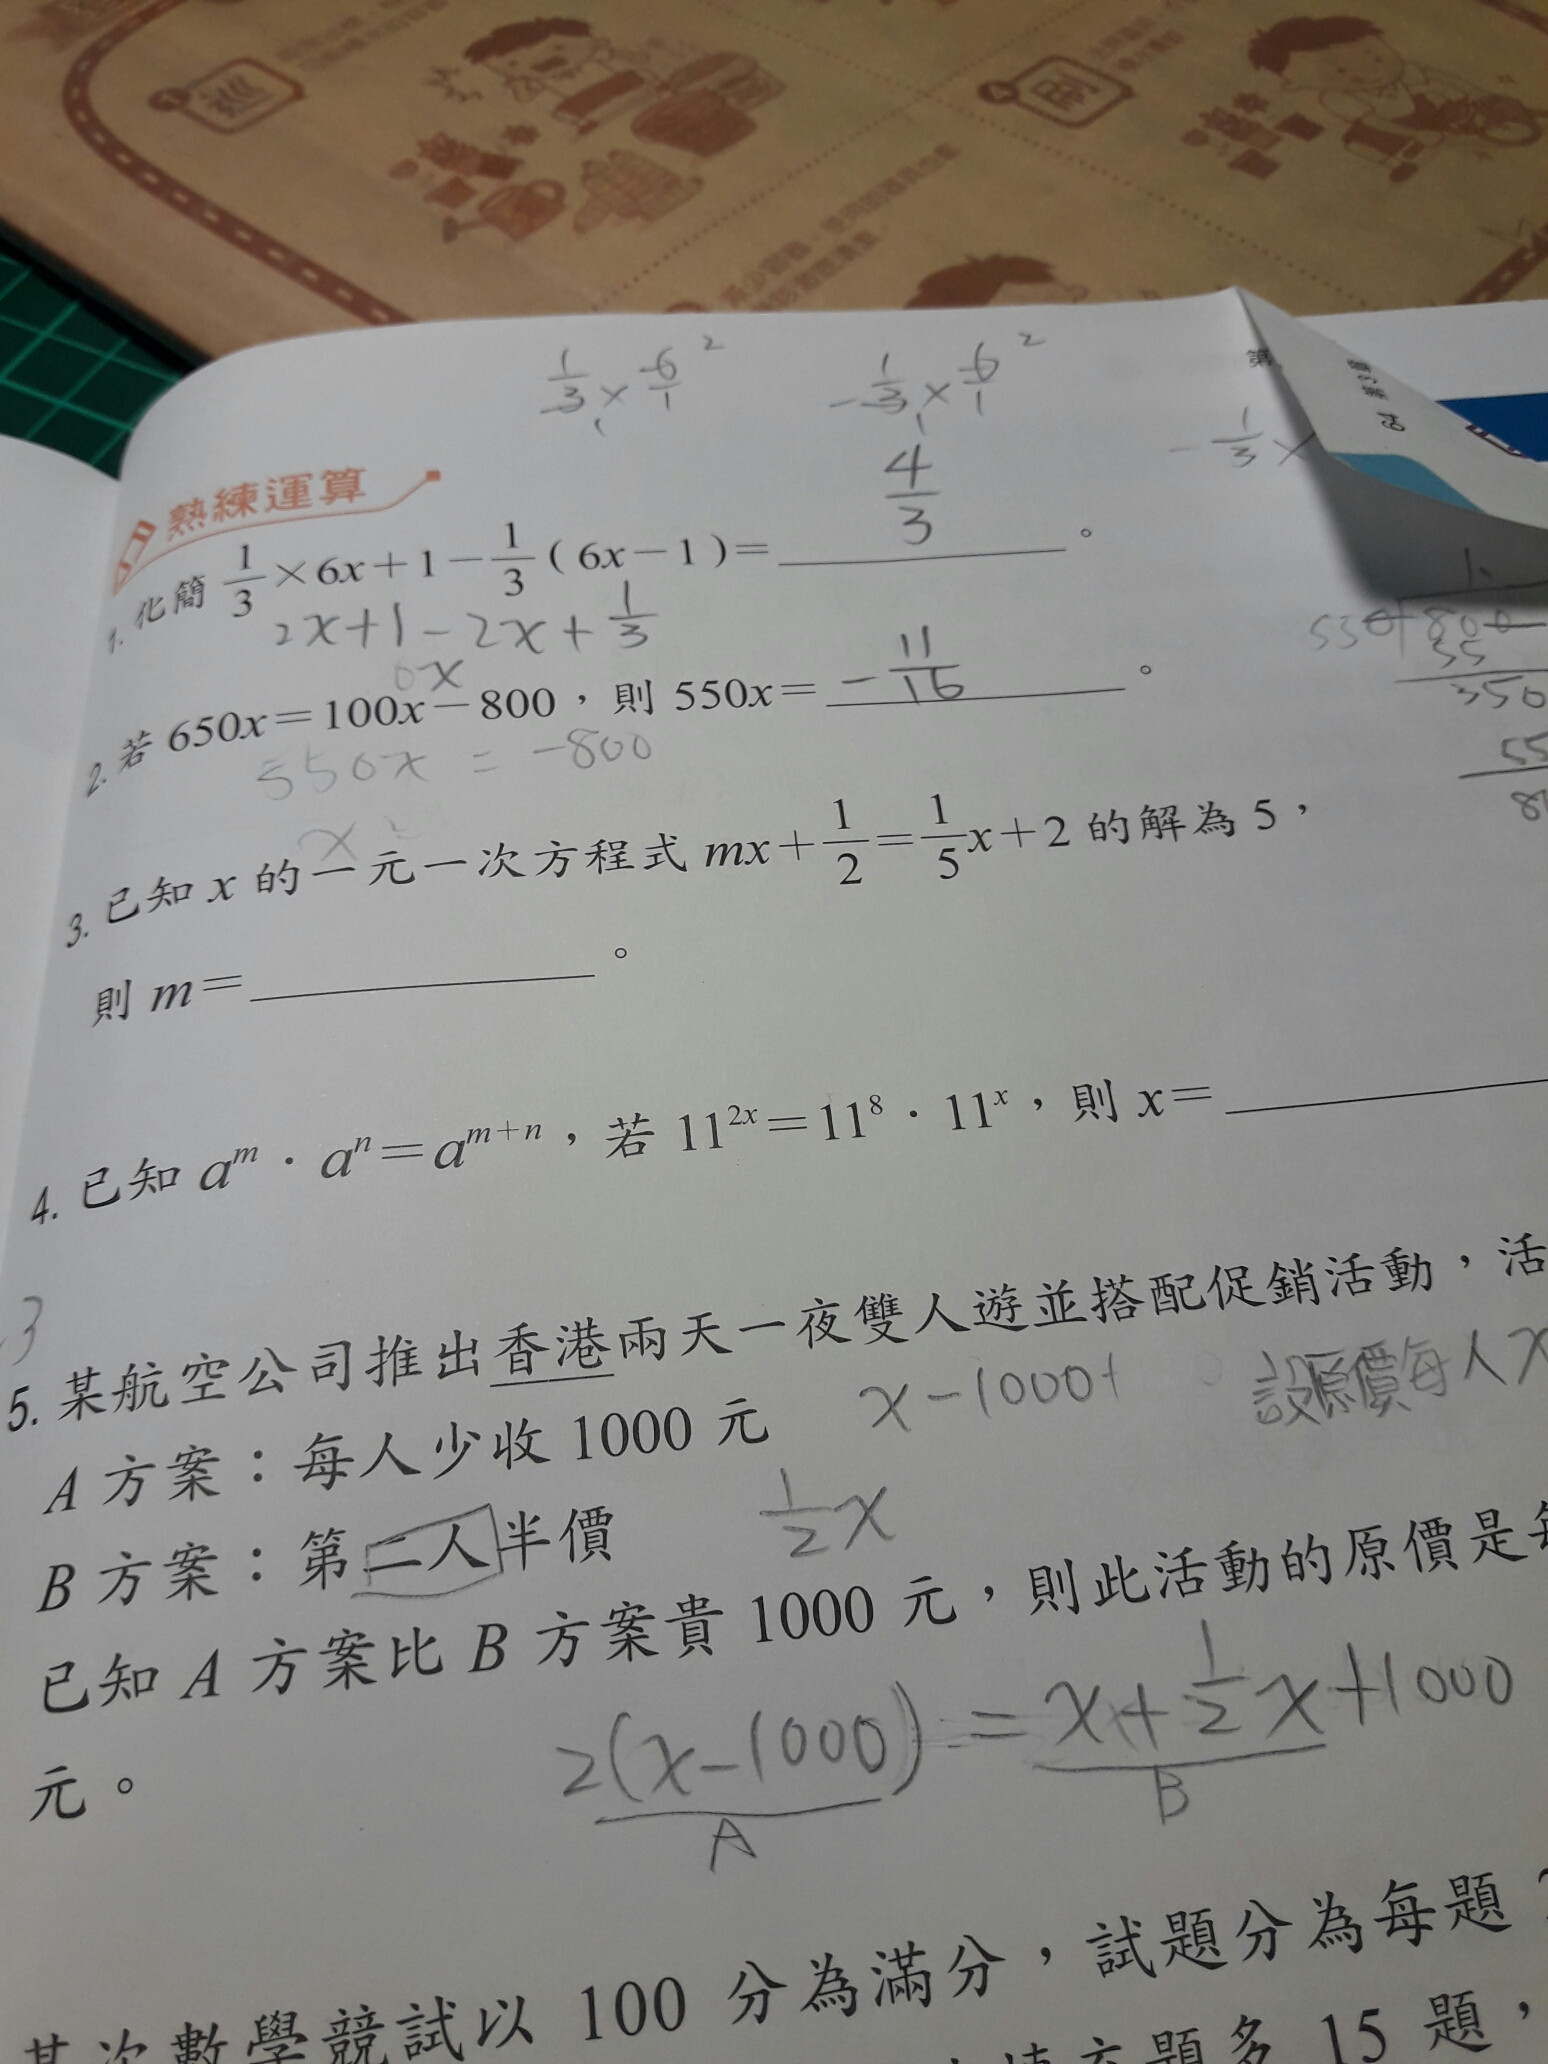 1/3 × 6/1 2
- 1/3 × 6/1 2
第
- 1/3 ×
熟練運算
1. 化簡 1/3 ×6x+1- 1/3 ( 6x-1 )= 4/3 。
2x+1-2x+ 1/3
0x
2. 若 650x=100x-800,則 550x= - 11/16 。
550x = -800
350
55
3. 已知 x 的一元一次方程式 mx+ 1/2 = 1/5 x+2 的解為 5,
x
則 m= 。
4. 已知 aᵐ · aⁿ=aᵐ⁺ⁿ,若 11²ˣ=11⁸ · 11ˣ,則 x=
3
5. 某航空公司推出香港兩天一夜雙人遊並搭配促銷活動,活
x-1000+
設原價每人x
A 方案:每人少收 1000 元
B 方案:第二人半價
1/2 x
已知 A 方案比 B 方案貴 1000 元,則此活動的原價是每
元。
2(x-1000) = x+ 1/2 x+1000
A
B
某次數學競試以 100 分為滿分,試題分為每題
填充題多 15 題,